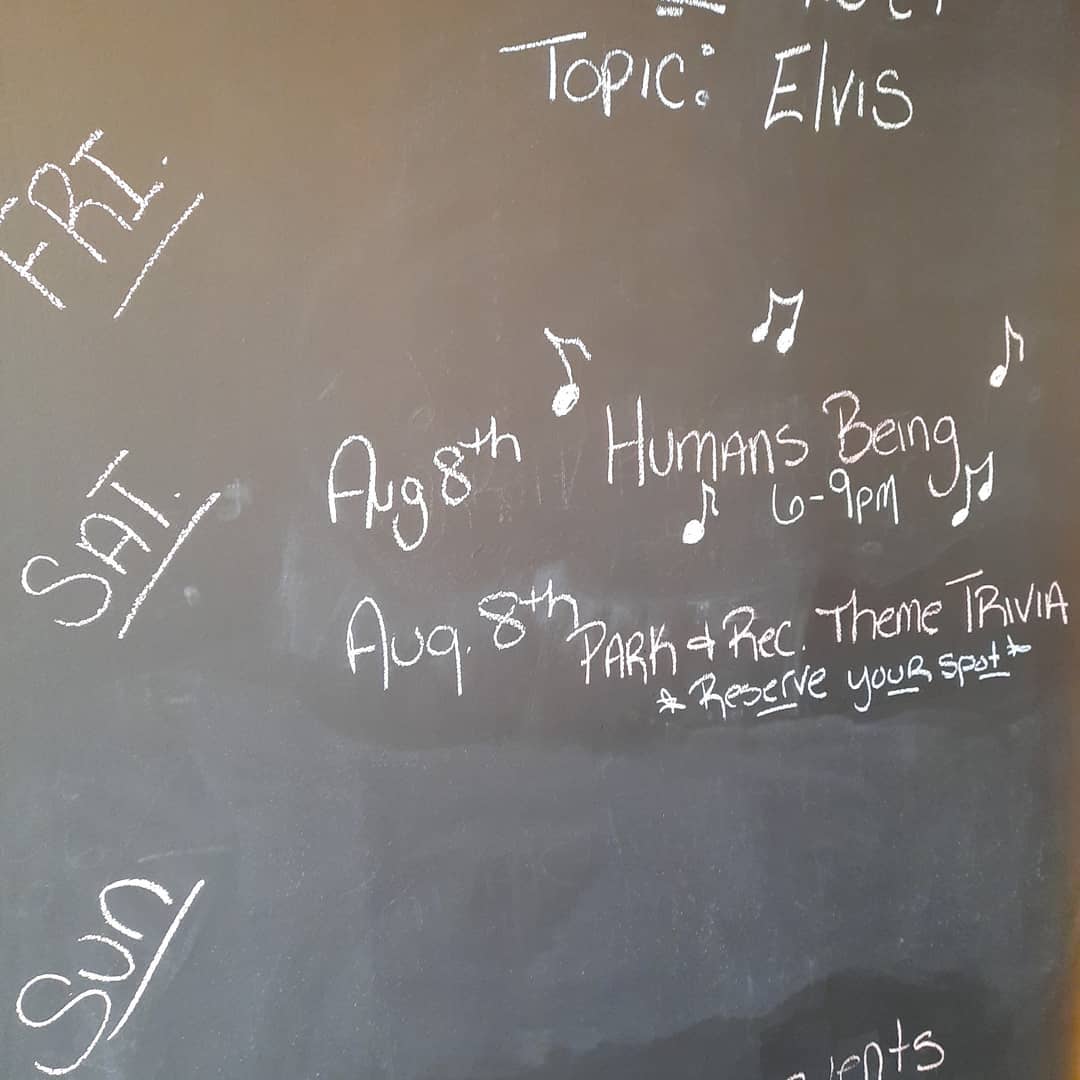 Topic: Elvis
FRI.
SAT.
Aug 8th Humans Being
6-9pm
Aug. 8th Park & Rec. Theme Trivia
*Reserve your spot*
Sun